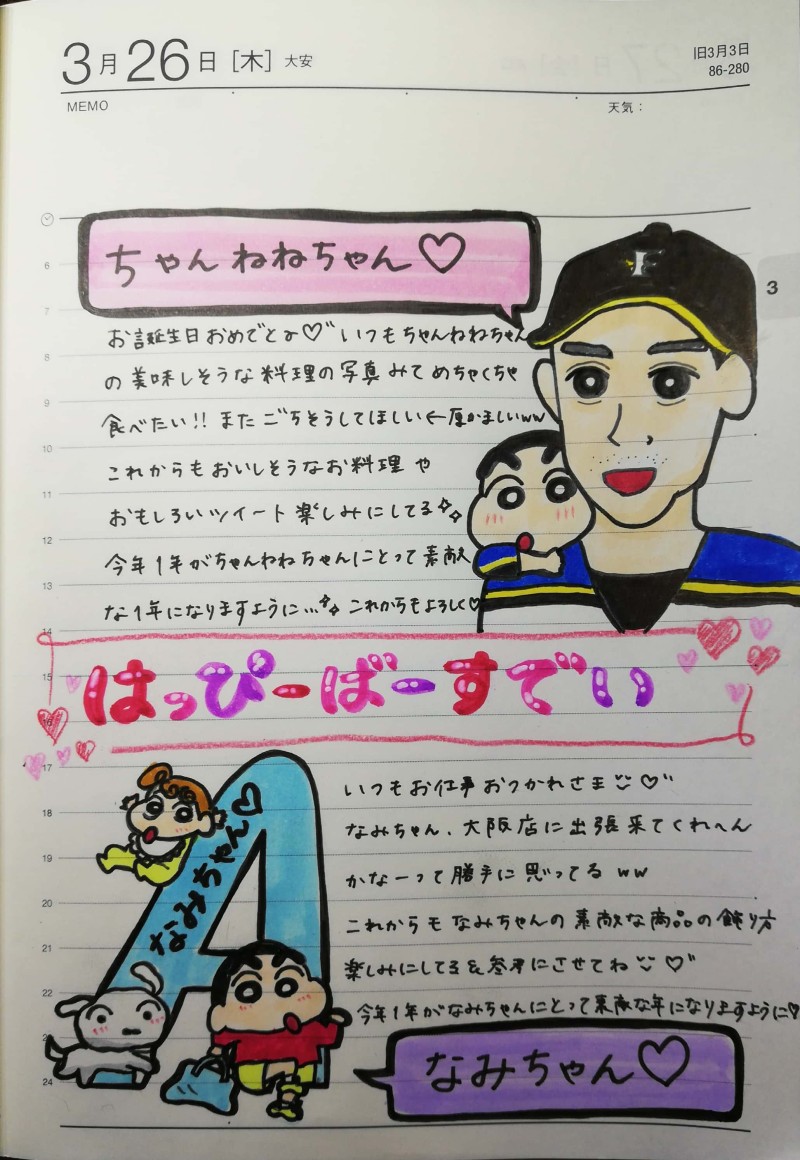 3月26日[木] 大安
旧3月3日
86-280
MEMO
天気:
ちゃんねねちゃん♡
お誕生日おめでとみ♡"いつもちゃんねねちゃん
の美味しそうな料理の写真みてめちゃくちゃ
食べたい!!またごちそうしてほしい←厚かましいww
これからもおいしそうなお料理や
おもしろいツイート楽しみにしてる✧✧
今年1年がちゃんねねちゃんにとって素敵
な1年になりますように…✧✧これからもよろしく♡
3
6
7
8
9
10
11
12
13
14
はっぴーばーすでい
15
16
17
18
19
20
21
22
23
24
なみちゃん♡
A
いつもお仕事おつかれさま♡"
なみちゃん、大阪店に出張来てくれへん
かなーって勝手に思ってるww
これからもなみちゃんの素敵な商品の飾り方
楽しみにしてる&参考にさせてね♡"
今年1年がなみちゃんにとって素敵な年になりますように♡
なみちゃん♡